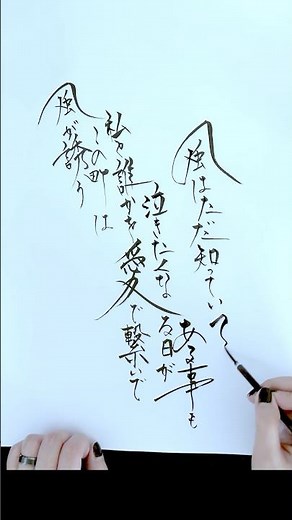 風はただ知っていて
泣きたくな
る日が
ある事も
私と誰かを愛で繋いで
この町は
風が誘う